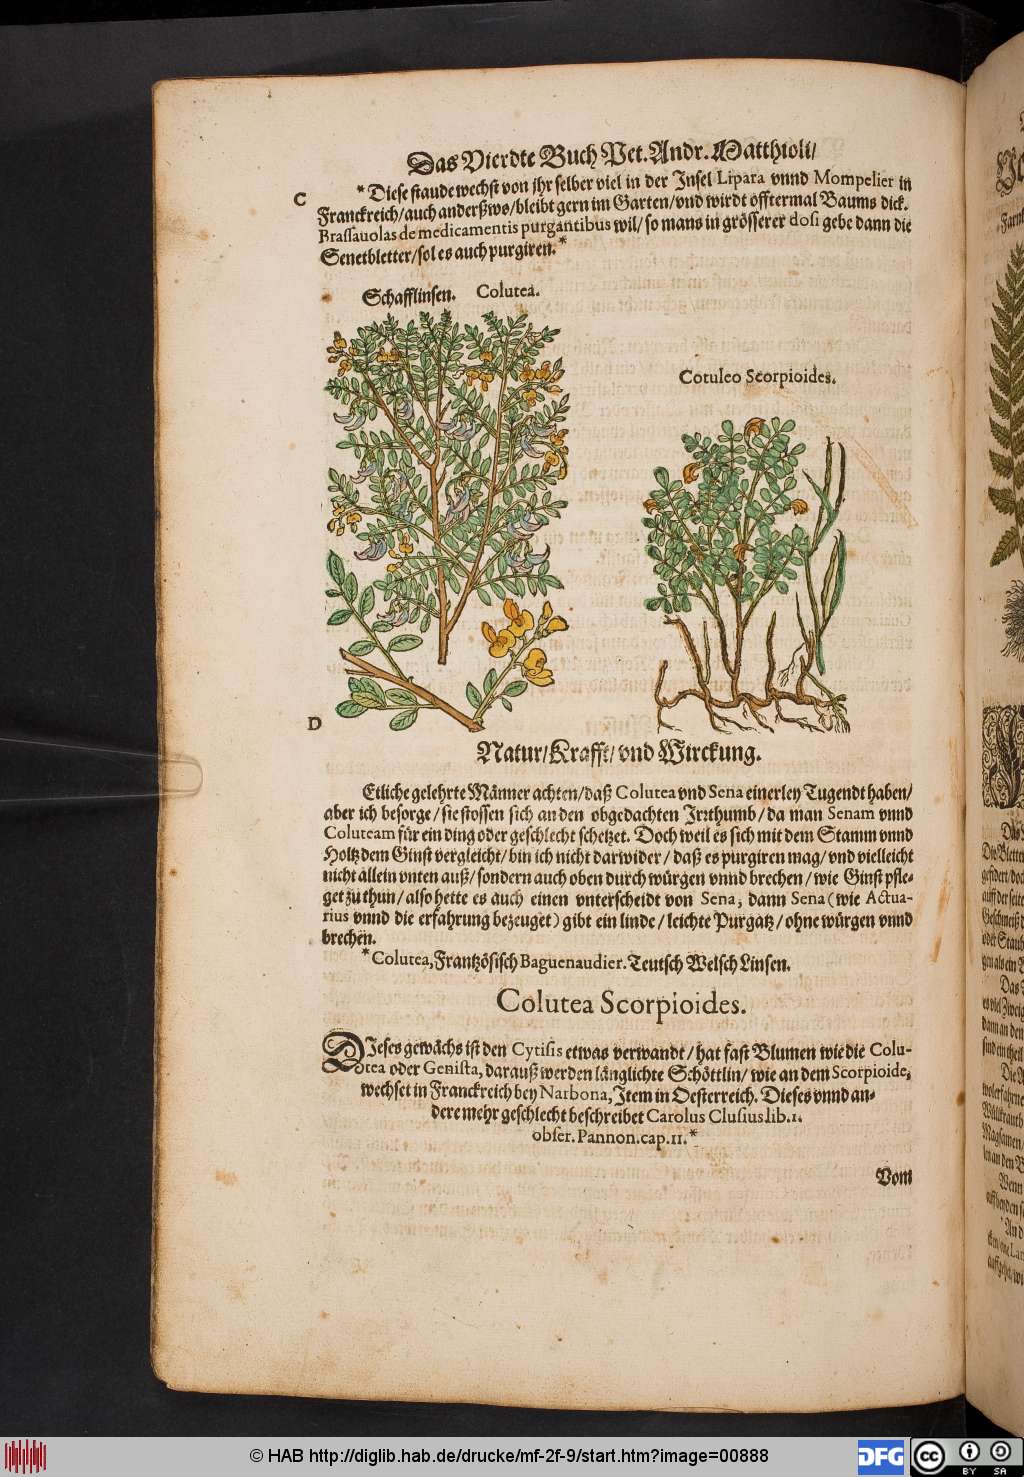 Das Vierdte Buch Pet. Andr. Matthioli/
C
* Diese staude wechst von jhr selber viel in der Insel Lipara vnnd Mompelier in
Franckreich/ auch anderßwo/ bleibt gern im Garten/ vnd wirdt öfftermal Baums dick.
Brassauolas de medicamentis purgantibus wil/ so mans in grösserer dosi gebe dann die
Senetbletter/ sol es auch purgiren. *
Schafflinsen. Colutea.
Cotuleo Scorpioides.
D
Natur/ Krafft/ vnd Wirckung.
Etliche gelehrte Männer achten/ daß Colutea vnd Sena einerley Tugendt haben/
aber ich besorge/ sie stossen sich an den obgedachten Irzthumb/ da man Senam vnnd
Coluteam für ein ding oder geschlecht schetzet. Doch weil es sich mit dem Stamm vnnd
Holtz dem Ginst vergleicht/ bin ich nicht darwider/ daß es purgiren mag/ vnd vielleicht
nicht allein vnten auß/ sondern auch oben durch würgen vnnd brechen/ wie Ginst pfle-
get zu thun/ also hette es auch einen vnterscheidt von Sena, dann Sena (wie Actua-
rius vnnd die erfahrung bezeuget) gibt ein linde/ leichte Purgatz/ ohne würgen vnnd
brechen.
* Colutea, Frantzösisch Baguenaudier. Teutsch Welsch Linsen.
Colutea Scorpioides.
DIeses gewächs ist den Cytisis etwas verwandt/ hat fast Blumen wie die Colu-
tea oder Genista, darauß werden länglichte Schöttlin/ wie an dem Scorpioide,
wechset in Franckreich bey Narbona, Item in Oesterreich. Dieses vnnd an-
dere mehr geschlecht beschreibet Carolus Clusius lib. 1.
obser. Pannon. cap. 11. *
Vom
© HAB http://diglib.hab.de/drucke/mf-2f-9/start.htm?image=00888
DFG
cc BY SA